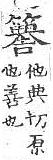 他典切厚
也善也